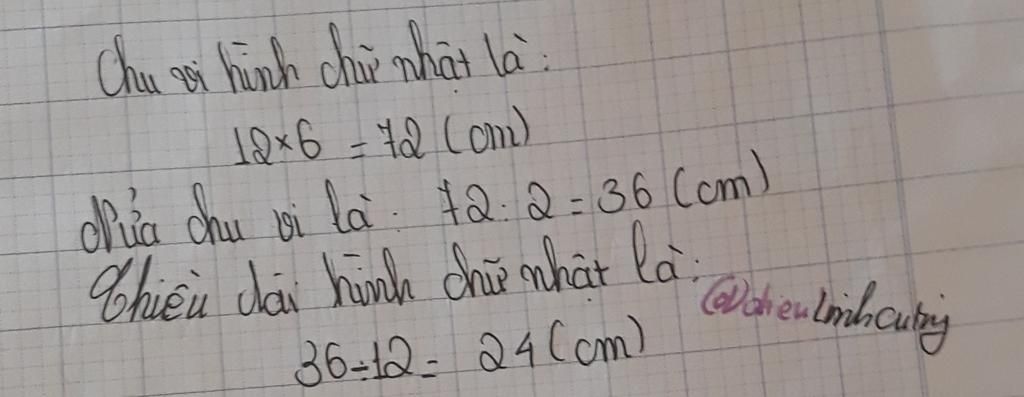 Chu vi hình chữ nhật là:
12 × 6 = 72 (cm)
Nửa chu vi là: 72 : 2 = 36 (cm)
Chiều dài hình chữ nhật là:
36 - 12 = 24 (cm)